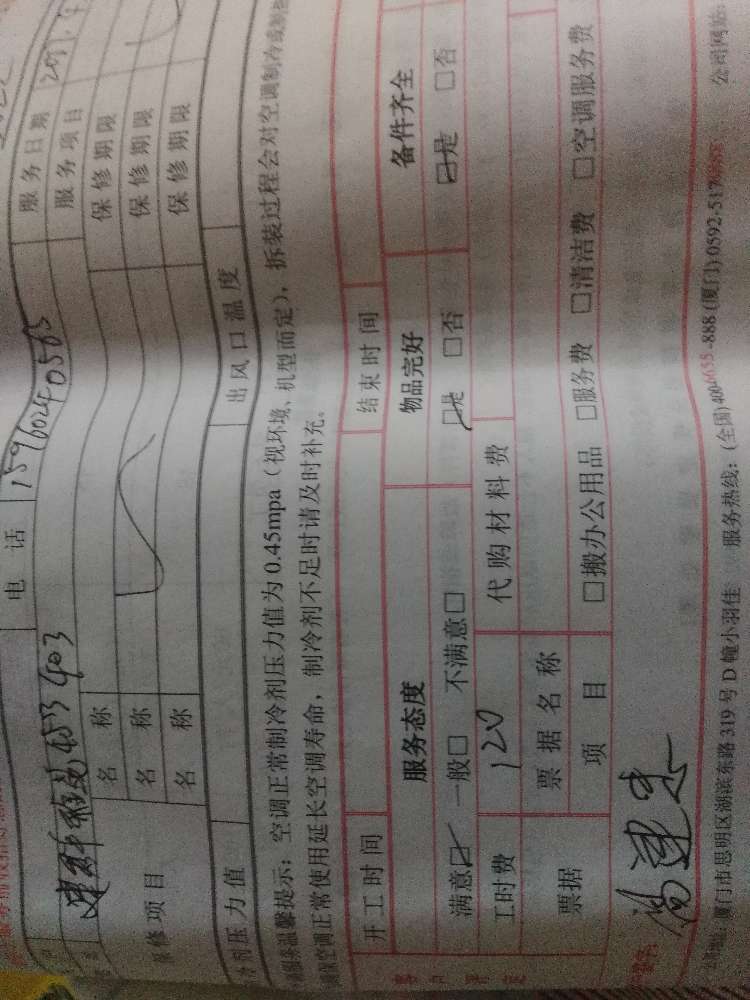 电话 15960240563 服务日期
403 服务项目
保修项目 名称 保修期限
名称 保修期限
名称 保修期限
压力值 出风口温度
服务温馨提示：空调正常制冷剂压力值为0.45mpa（视环境、机型而定），拆装过程会对空调制冷或制热
确保空调正常使用延长空调寿命，制冷剂不足时请及时补充。
开工时间 结束时间
服务态度 物品完好 备件齐全
满意☑ 一般□ 不满意□ ☑是 □否 ☑是 □否
工时费 120 代购材料费
票据 票据名称
项目 □搬办公用品 □服务费 □清洁费 □空调服务费
公司地址：厦门市思明区湖滨东路319号D幢小羽佳 服务热线：(全国)400-6655-888 (厦门)0592-517 公司网站: